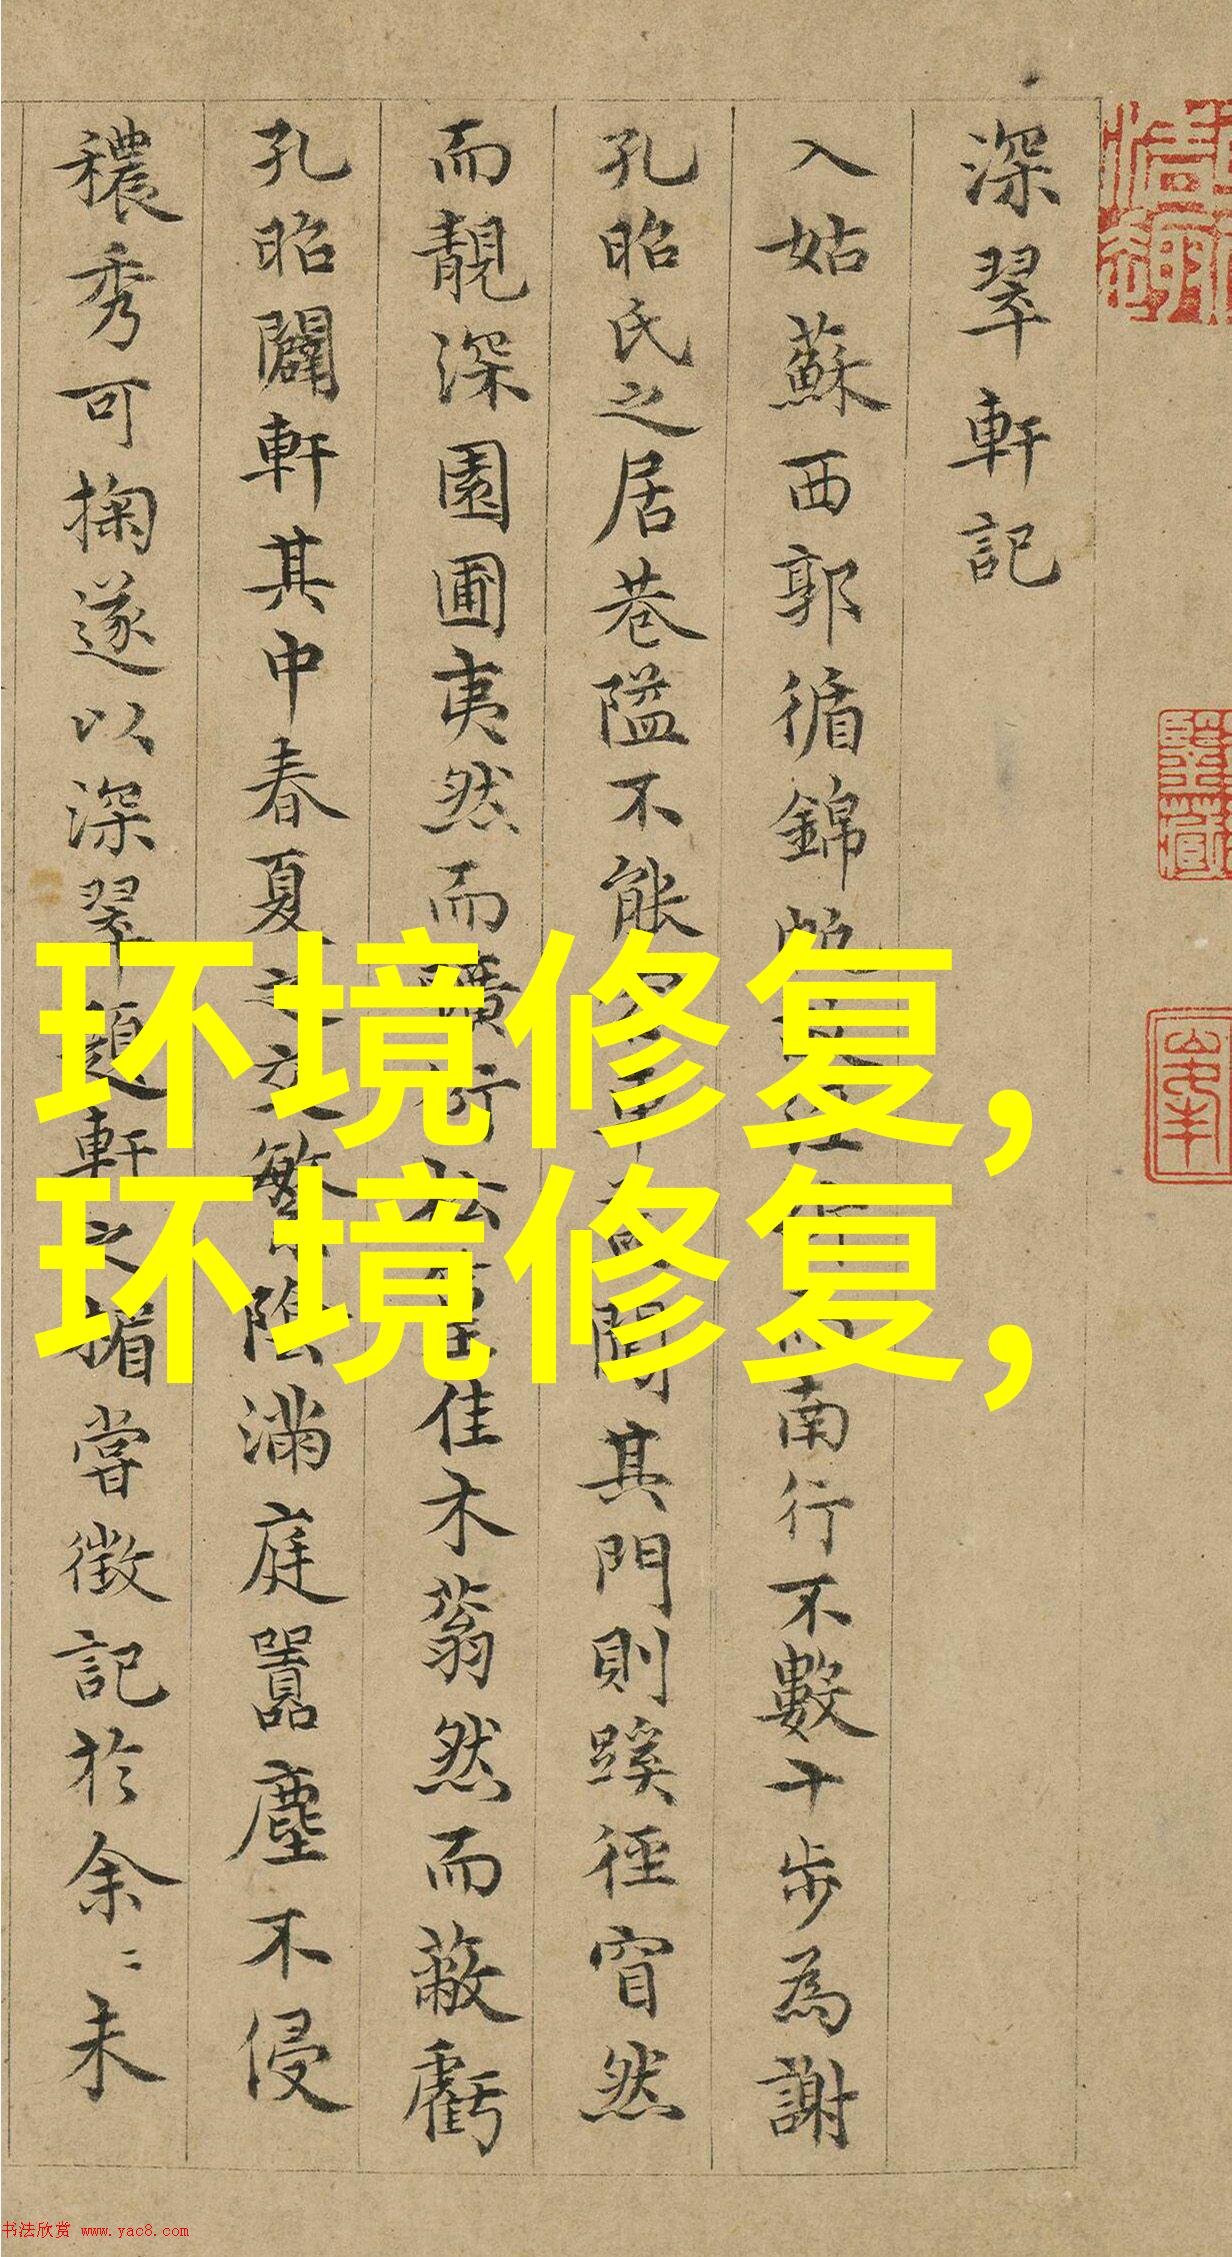 深翠軒記
入姑蘇西郭循錦帆南行不數十步為謝
孔昭氏之居巷隘不能車其門則蹊徑窅然
而靚深園圃夷然而曠衍松佳木蓊然而蔽虧
孔昭闢軒其中春夏之交繁陰滿庭囂塵不侵
穠秀可掬遂以深翠題軒之楣嘗徵記於余〻未
环境修复，
环境修复，
书法欣赏 www.yac8.com